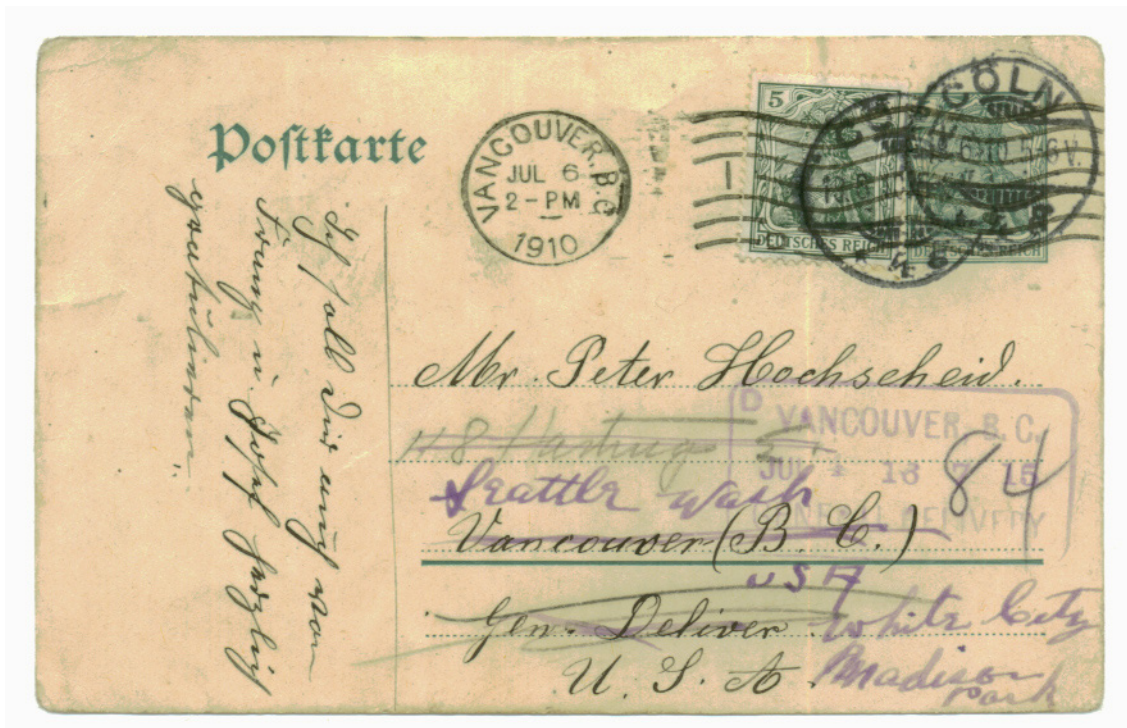 Postkarte
VANCOUVER, B.C.
JUL 6
2 - PM
1910
5
DEUTSCHES REICH
DEUTSCHES REICH
CÖLN
5-6V.
Ich soll Dir auch von
Franz u. Josef herzlich
gratulieren.
Mr. Peter Hochscheid.
118 Hastings St
D VANCOUVER, B.C.
JUL 4 1910
GENERAL DELIVERY
84
Seattle Wash
Vancouver (B. C.)
USA
Gen. Deliver.
White City
U. S. A.
Madison
Park